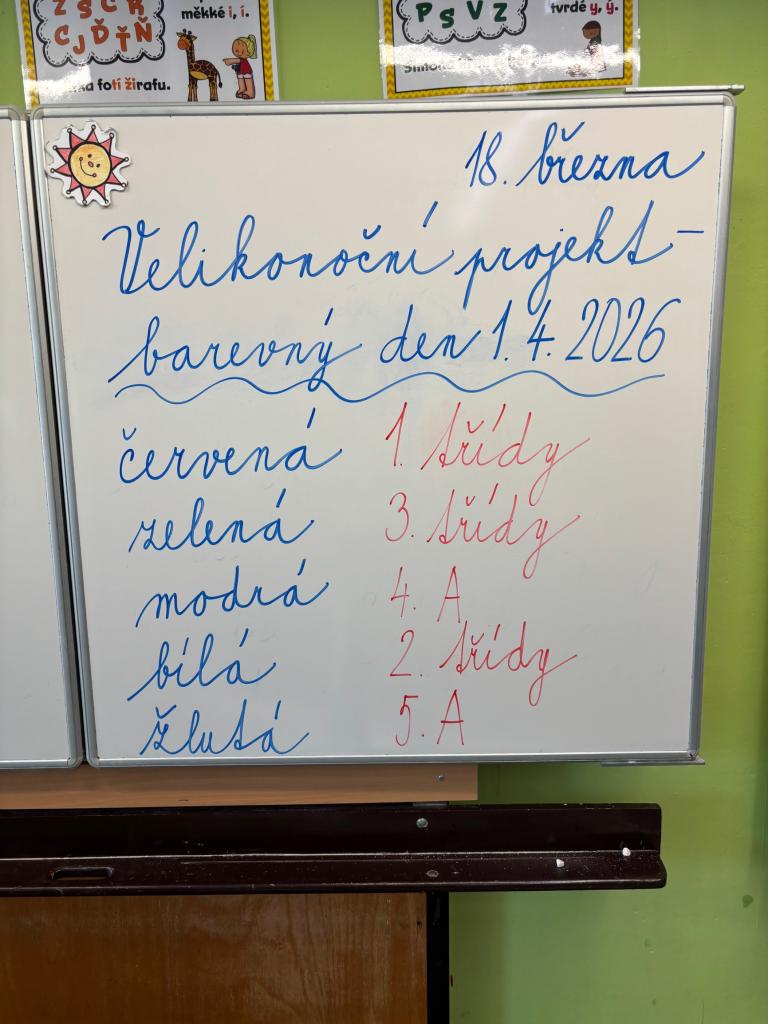 Z S C R
C J Ď Ť Ň
měkké i, í.
fotí žirafu.
P S V Z
tvrdé y, ý.
18. března
Velikonoční projekt -
barevný den 1. 4. 2026
červená 1. třídy
zelená 3. třídy
modrá 4. A
bílá 2. třídy
žlutá 5. A